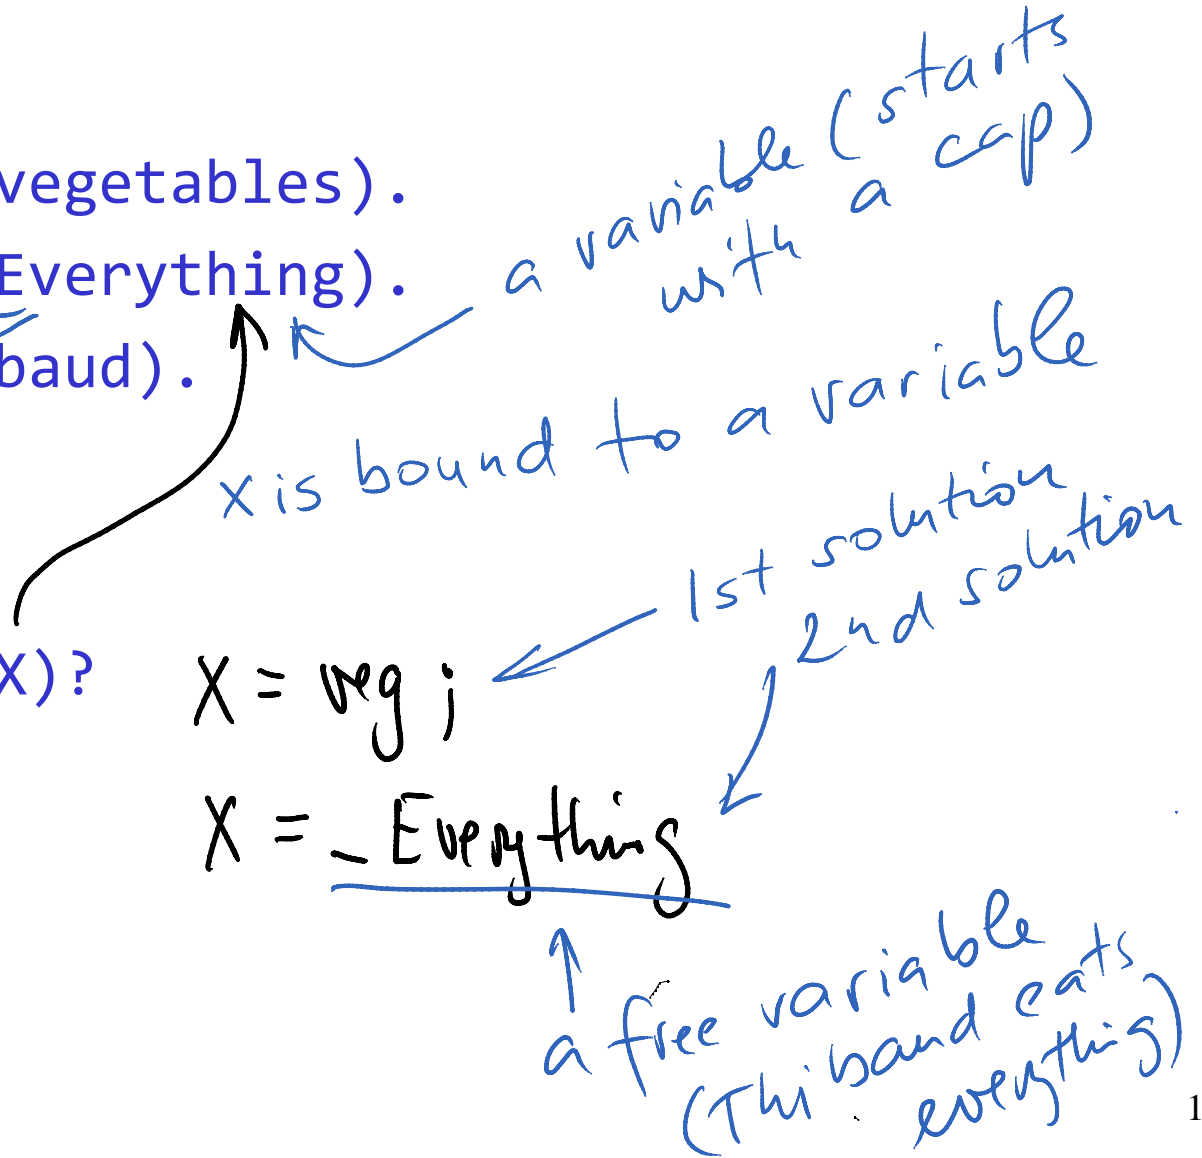 vegetables).
Everything).
baud).
a variable (starts
with a cap)
x is bound to a variable
1st solution
2nd solution
X)?
X = veg ;
X = _Everything
a free variable
(Thibaud eats
everything)
1